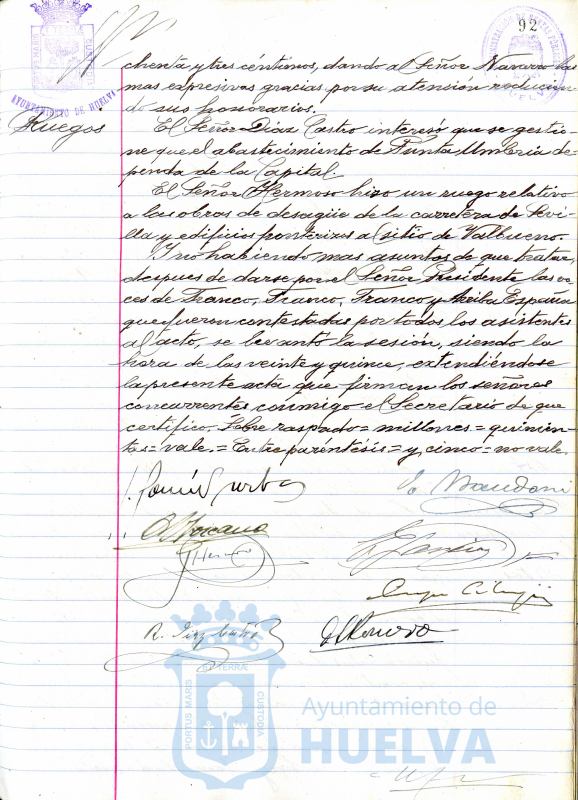 92
AYUNTAMIENTO DE HUELVA
HUELVA
chenta y tres céntimos, dando al Señor Navarro las
mas expresivas gracias por su atención reducien-
do sus honorarios.
Ruegos
El Señor Díaz Castro interesó que se gestio-
ne que el abastecimiento de Punta Umbria de-
penda de la Capital.
El Señor Hermoso hizo un ruego relativo
a las obras de desagüe de la carretera de Sevi-
lla y edificios fronterizos al sitio de Valbueno.
Y no habiendo mas asuntos de que tratar,
despues de darse por el Señor Presidente las vo-
ces de Franco, Franco, Franco y Arriba España
que fueron contestadas por todos los asistentes
al acto, se levantó la sesión, siendo la
hora de las veinte y quince, extendiéndose
la presente acta que firman los señores
concurrentes conmigo el Secretario de que
certifico. Sobre raspado = millones = quinien-
tas = vale. = Entre paréntesis = y cinco = no vale.
R. Díaz Castro
PORTUS MARIS
ET TERRÆ
CUSTODIA
Ayuntamiento de
HUELVA